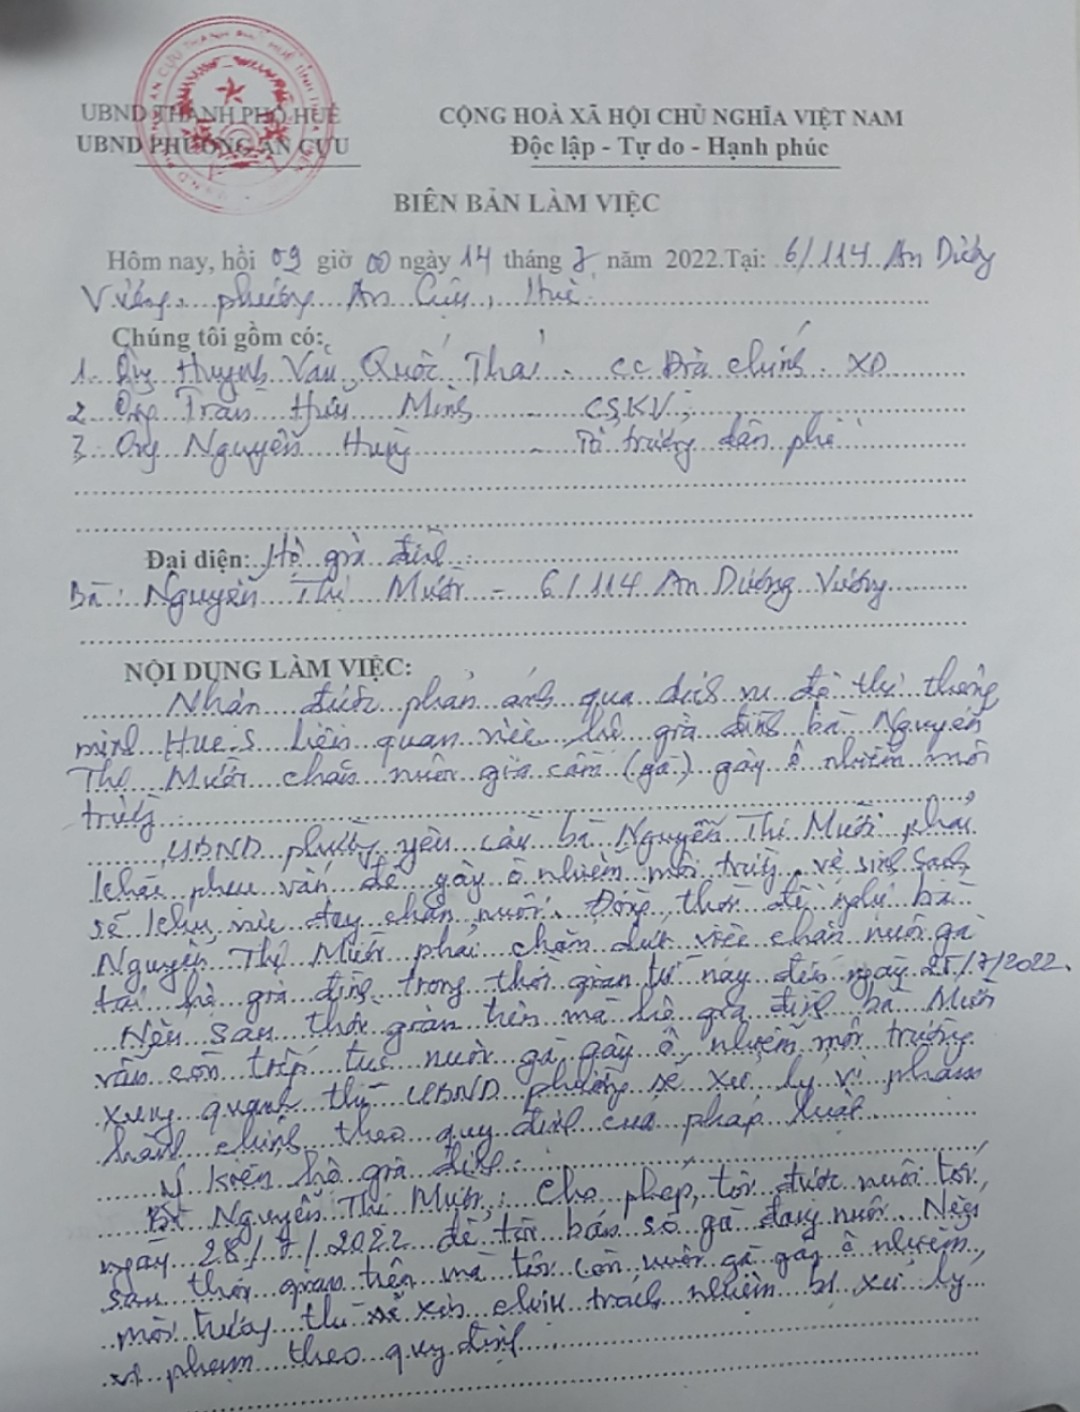 UBND THÀNH PHỐ HUẾ
UBND PHƯỜNG AN CỰU
CỘNG HOÀ XÃ HỘI CHỦ NGHĨA VIỆT NAM
Độc lập - Tự do - Hạnh phúc
BIÊN BẢN LÀM VIỆC
Hôm nay, hồi 09 giờ 00 ngày 14 tháng 7 năm 2022.Tại: 6/114 An Dương
Vương, phường An Cựu, Huế.
Chúng tôi gồm có:
1. Ông Huỳnh Văn Quốc Thái - CC Địa chính - XD
2. Ông Trần Hữu Minh - CSKV;
3. Ông Nguyễn Hùng - Tổ trưởng dân phố
Đại diện: Hộ gia đình:
Bà: Nguyễn Thị Mười - 6/114 An Dương Vương
NỘI DUNG LÀM VIỆC:
Nhận được phản ánh qua dịch vụ đô thị thông
minh Hue-S liên quan việc hộ gia đình bà Nguyễn
Thị Mười chăn nuôi gia cầm (gà) gây ô nhiễm môi
trường.
UBND phường yêu cầu bà Nguyễn Thị Mười phải
khắc phục vấn đề gây ô nhiễm môi trường, vệ sinh sạch
sẽ khu vực đang chăn nuôi. Đồng thời đề nghị bà
Nguyễn Thị Mười phải chấm dứt việc chăn nuôi gà
tại hộ gia đình trong thời gian từ nay đến ngày 25/7/2022.
Nếu sau thời gian trên mà hộ gia đình bà Mười
vẫn còn tiếp tục nuôi gà gây ô nhiễm môi trường
xung quanh thì UBND phường sẽ xử lý vi phạm
hành chính theo quy định của pháp luật.
Ý kiến hộ gia đình:
Bà Nguyễn Thị Mười: Cho phép tôi được nuôi tới
ngày 28/7/2022 để tôi bán số gà đang nuôi. Nếu
sau thời gian trên mà tôi còn nuôi gà gây ô nhiễm
môi trường thì xin chịu trách nhiệm bị xử lý
vi phạm theo quy định.